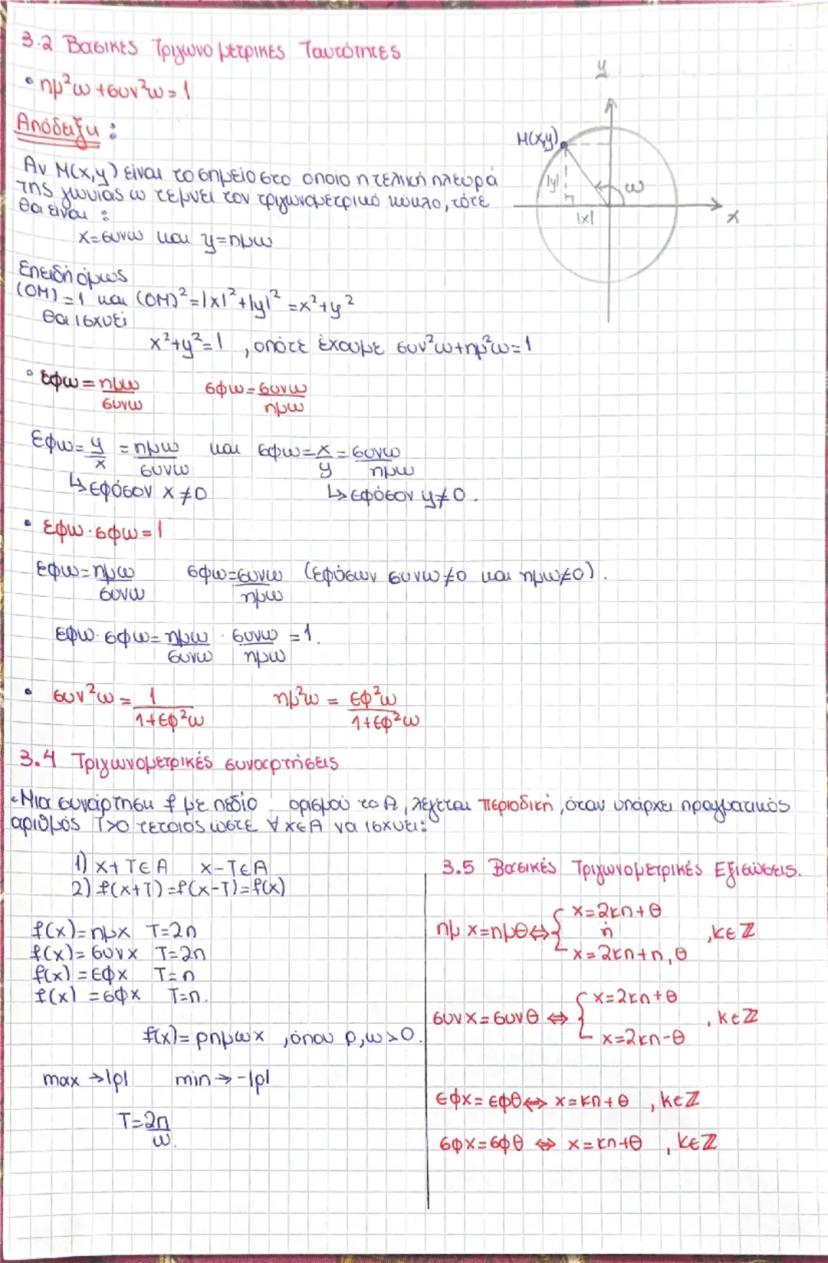 3.2 Βασικές Τριγωνομετρικές Ταυτότητες
• ημ²ω+συν²ω=1
Απόδειξη :
Αν Μ(x,y) είναι το σημείο στο οποίο η τελική πλευρά
της γωνίας ω τέμνει τον τριγωνομετρικό κύκλο, τότε
θα είναι :
x=συνω και y=ημω
y
Μ(x,y)
|y|
ω
|x|
x
Επειδή όμως
(ΟΜ)=1 και (ΟΜ)²=|x|²+|y|²=x²+y²
θα ισχύει
x²+y²=1 , οπότε έχουμε συν²ω+ημ²ω=1
• εφω=ημω/συνω σφω=συνω/ημω
εφω=y/x=ημω/συνω και σφω=x/y=συνω/ημω
↳ εφόσον x≠0 ↳ εφόσον y≠0.
• εφω·σφω=1
εφω=ημω/συνω σφω=συνω/ημω (εφόσων συνω≠0 και ημω≠0).
εφω·σφω=ημω/συνω · συνω/ημω =1.
• συν²ω=1/1+εφ²ω ημ²ω=εφ²ω/1+εφ²ω
3.4 Τριγωνομετρικές συναρτήσεις
•Μια συνάρτηση f με πεδίο ορισμού το Α, λέγεται περιοδική, όταν υπάρχει πραγματικός
αριθμός Τ>0 τέτοιος ώστε ∀x∈A να ισχύει:
1) x+T∈A x-T∈A
2) f(x+T)=f(x-T)=f(x)
f(x)=ημx T=2π
f(x)=συνx T=2π
f(x)=εφx T=π
f(x)=σφx T=π.
f(x)=ρημωx , όπου ρ,ω>0.
max →|ρ| min →-|ρ|
T=2π/ω.
3.5 Βασικές Τριγωνομετρικές Εξισώσεις.
ημx=ημθ⇔{ x=2κπ+θ
ή , κ∈ℤ
x=2κπ+π,θ
συνx=συνθ ⇔ { x=2κπ+θ
, κ∈ℤ
x=2κπ-θ
εφx=εφθ⇔ x=κπ+θ , κ∈ℤ
σφx=σφθ ⇔ x=κπ+θ , κ∈ℤ